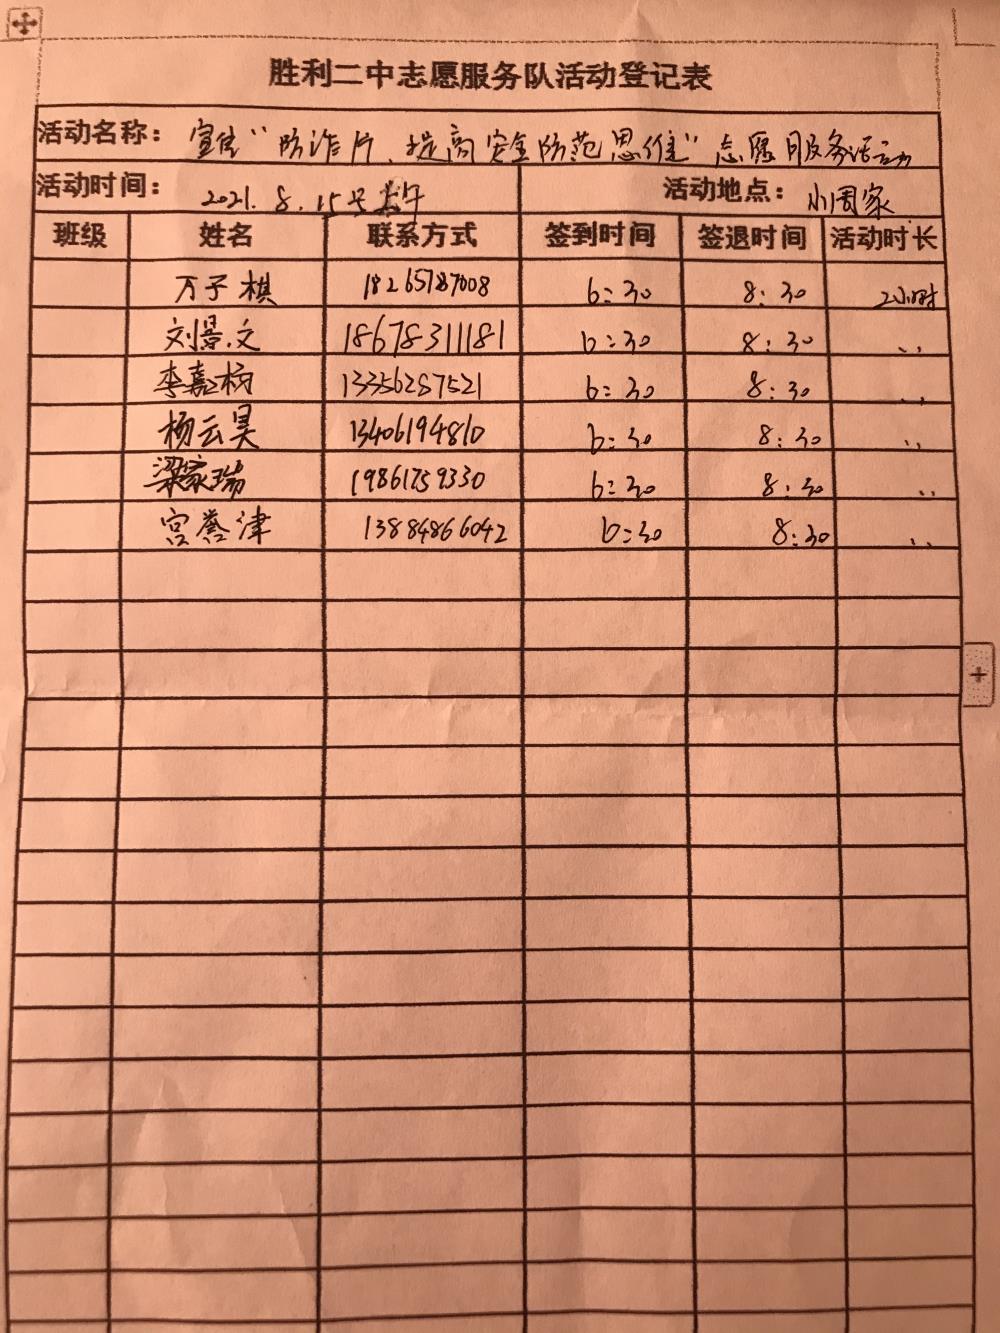 胜利二中志愿服务队活动登记表
活动名称： 宣传“防诈片、提高安全防范思维”志愿服务活动
活动时间： 2021.8.15号 活动地点： 小周家
班级 姓名 联系方式 签到时间 签退时间 活动时长
万子棋 18265787008 6:30 8:30 2小时
刘景文 18678311181 6:30 8:30 、、
李嘉 13356287521 6:30 8:30 、、
杨云昊 13406194810 6:30 8:30 、、
梁家瑞 19861759330 6:30 8:30 、、
宫誉津 13884866042 6:30 8:30 、、